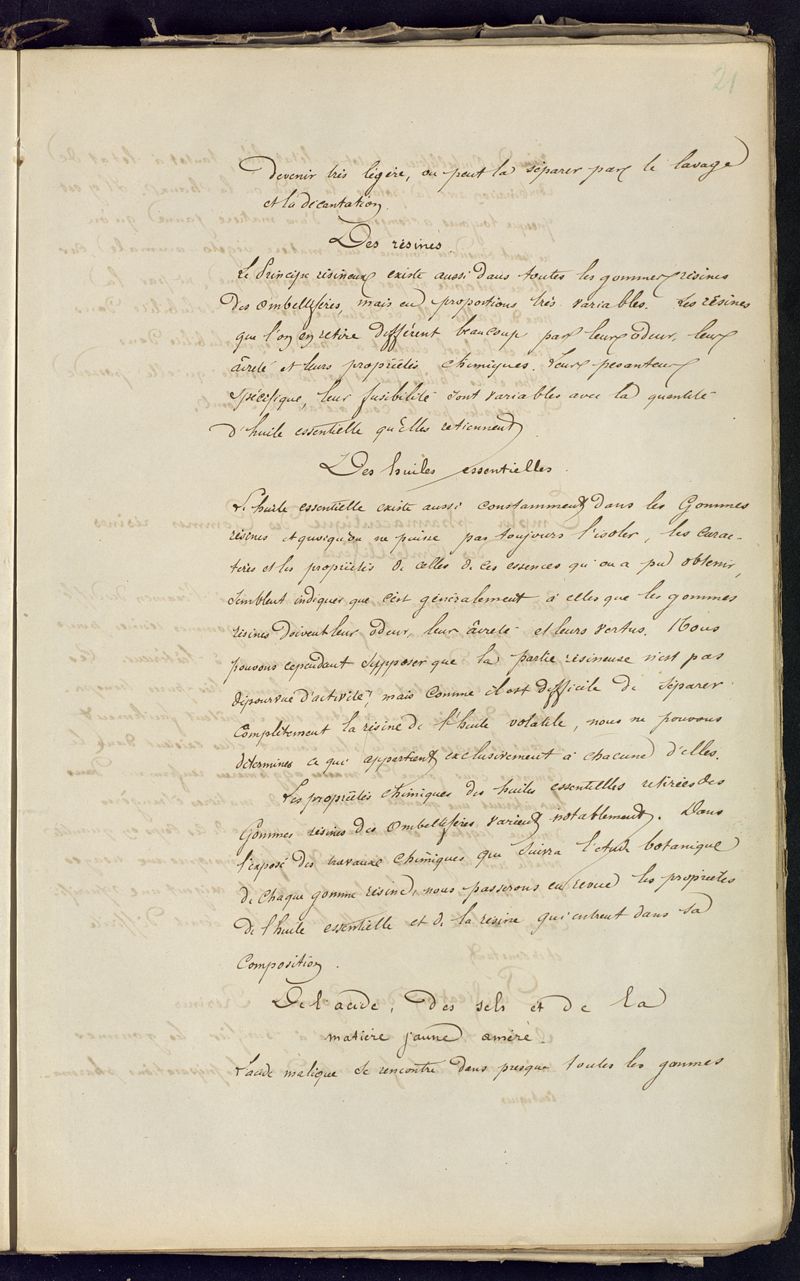 21
devenir très légère, on peut la séparer par le lavage
et la décantation.
Des résines.
Le Principe résineux existe aussi dans toutes les gommes résines
des ombellifères, mais en proportions très variables. Les résines
que l'on en retire diffèrent beaucoup par leur odeur, leur
âcreté et leurs propriétés chimiques. Leur pesanteur
spécifique, leur fusibilité sont variables avec la quantité
d'huile essentielle qu'Elles retiennent.
Des huiles essentielles.
L'huile essentielle existe aussi constamment dans les Gommes
résines et quoiqu'on ne puisse pas toujours l'isoler, les carac-
tères et les propriétés de celles de ces essences qu'on a pu obtenir,
semblent indiquer que c'est généralement à elles que les gommes
résines doivent leur odeur, leur âcreté et leurs vertus. Nous
pouvons cependant supposer que la partie résineuse n'est pas
dépourvue d'activité, mais comme il est difficile de séparer
complètement la résine de l'huile volatile, nous ne pouvons
déterminer ce qui appartient exclusivement à chacune d'elles.
Les propriétés chimiques des huiles essentielles retirées des
Gommes résines des ombellifères varient notablement. Dans
l'exposé des travaux chimiques qui suivra l'étude botanique
de chaque gomme résine, nous passerons en revue les propriétés
de l'huile essentielle et de la résine qui entrent dans sa
Composition.
De l'acide, des sels et de la
matière jaune amère.
L'acide malique se rencontre dans presque toutes les gommes